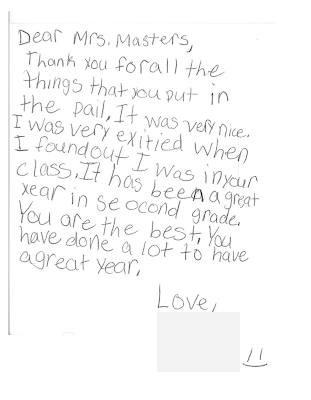 Dear Mrs. Masters,
Thank you for all the
things that you put in
the pail, It was very nice.
I was very exitied when
I found out I was in your
class. It has been a great
year in se ocond grade.
You are the best, You
have done a lot to have
a great year,
Love,